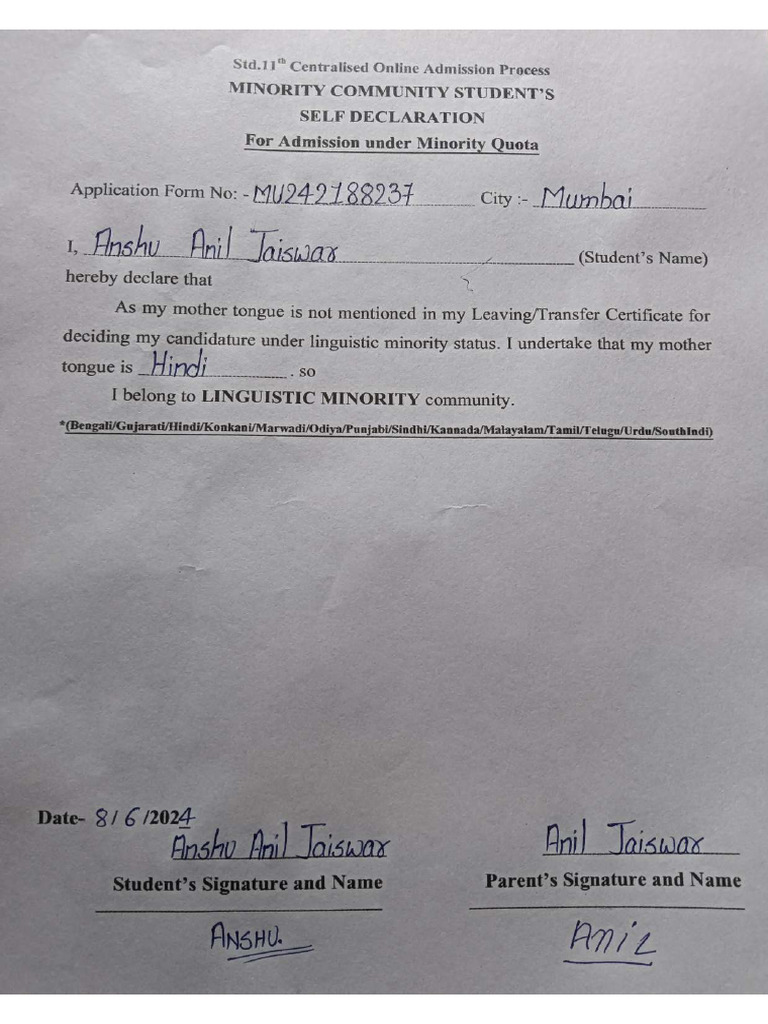 Std.11th Centralised Online Admission Process
MINORITY COMMUNITY STUDENT'S
SELF DECLARATION
For Admission under Minority Quota
Application Form No: - MU242188237 City :- Mumbai
I, Anshu Anil Jaiswar (Student's Name)
hereby declare that
As my mother tongue is not mentioned in my Leaving/Transfer Certificate for
deciding my candidature under linguistic minority status. I undertake that my mother
tongue is Hindi . so
I belong to LINGUISTIC MINORITY community.
*(Bengali/Gujarati/Hindi/Konkani/Marwadi/Odiya/Punjabi/Sindhi/Kannada/Malayalam/Tamil/Telugu/Urdu/SouthIndi)
Date- 8/6/2024
Anshu Anil Jaiswar Anil Jaiswar
Student's Signature and Name Parent's Signature and Name
ANSHU. Anil